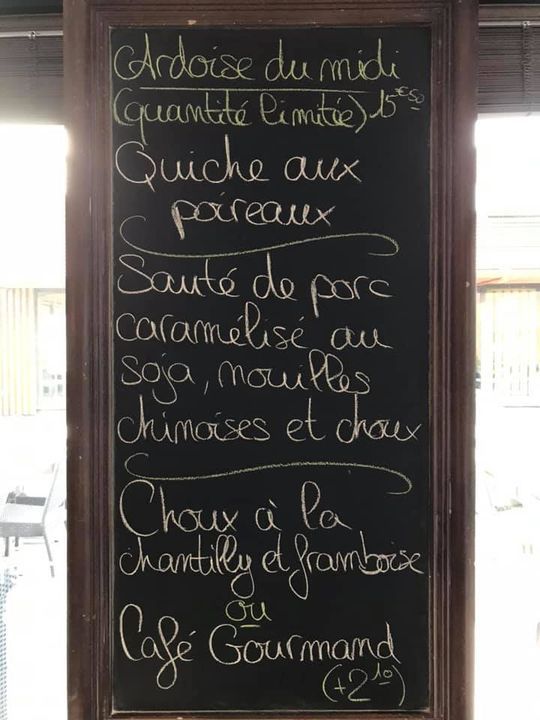 Ardoise du midi
(quantité limitée) 15€50
Quiche aux
poireaux
Sauté de porc
caramélisé au
soja, nouilles
chinoises et choux
Choux à la
chantilly et framboise
ou
Café Gourmand
(+2 10)